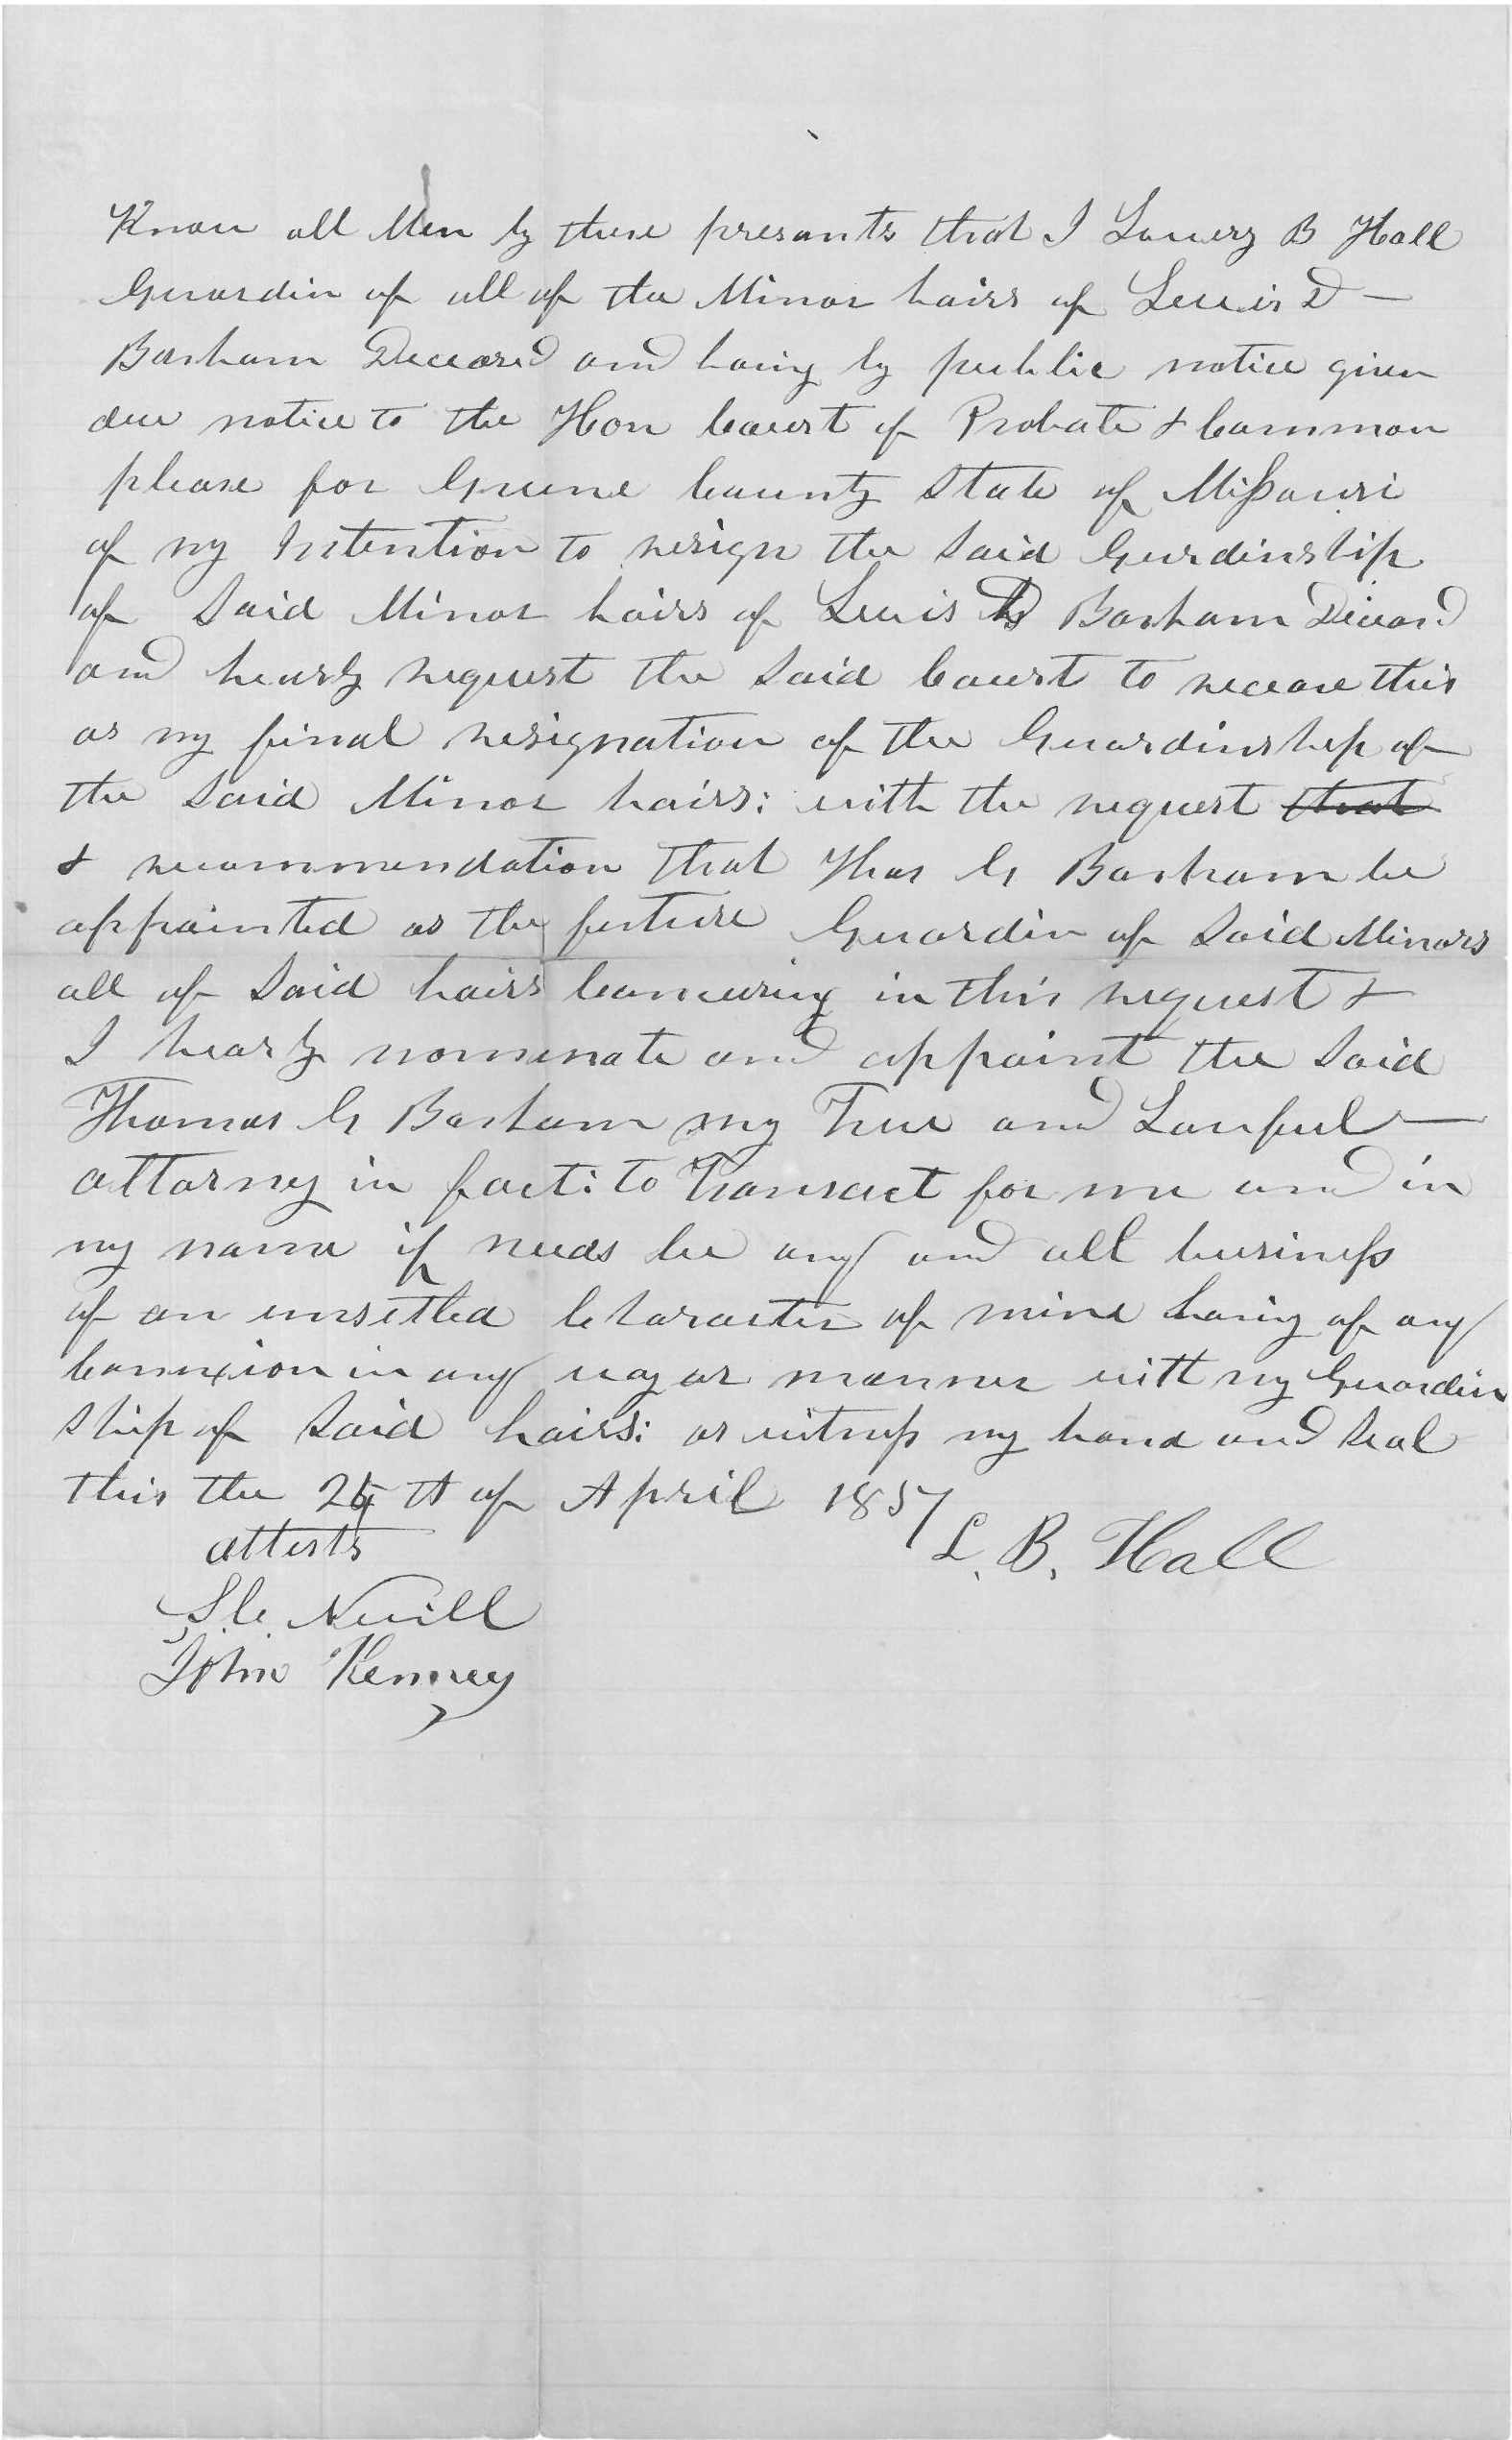 Know all Men by these presants that I Lowery B Hall
Guardin of all of the Minor hairs of Lewis D —
Basham Deceasd and having by public notice given
due notice to the Hon Court of Probate & Common
please for Greene County State of Missouri
of my Intention to resign the Said Gurdinship
of Said Minor hairs of Lewis D Basham Diceasd
and hearby request the Said Court to receave this
as my final resignation of the Guardinship of
the Said Minor hairs: with the request that
& recommendation that Thos G Basham be
appainted as the future Guardin of Said Minors
all of Said hairs Concuring in this request &
I hearby nominate and appoint the Said
Thomas G Basham my True and Lawful —
attorny in fact: to Transact for me and in
my name if needs be any and all business
of an unsetled Character of mine having of any
Connexion in any way or manner with my Guardin
Ship of Said hairs: as witness my hand and Seal
this the th of April 1857
attests L. B. Hall
S. C. Nevill
John Kenney